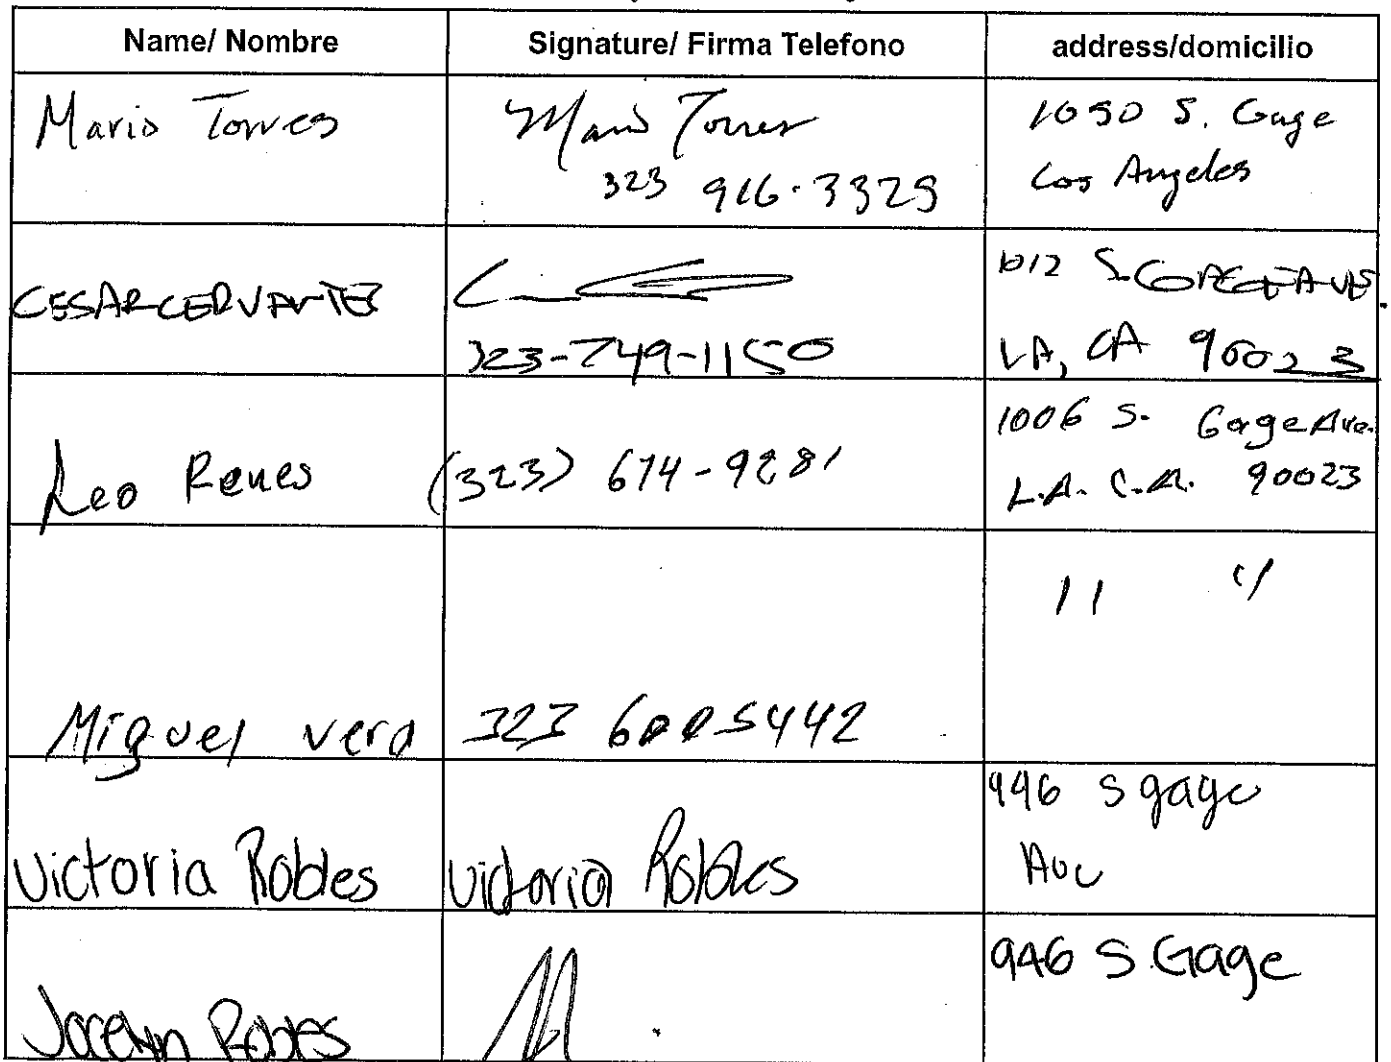 Name/ Nombre
Signature/ Firma Telefono
address/domicilio
Mario Torres
Mario Torres
323 916-3329
1050 S. Gage
Los Angeles
CESAR CERVANTES
323-749-1150
1012 S. GAGE AVE.
LA, CA 90023
Leo Reues
(323) 674-9281
1006 S. Gage Ave.
L.A. C.A. 90023
Miguel vera
323 6005442
" "
Victoria Robles
Victoria Robles
946 S gage
Ave
Jocelyn Robles
946 S Gage